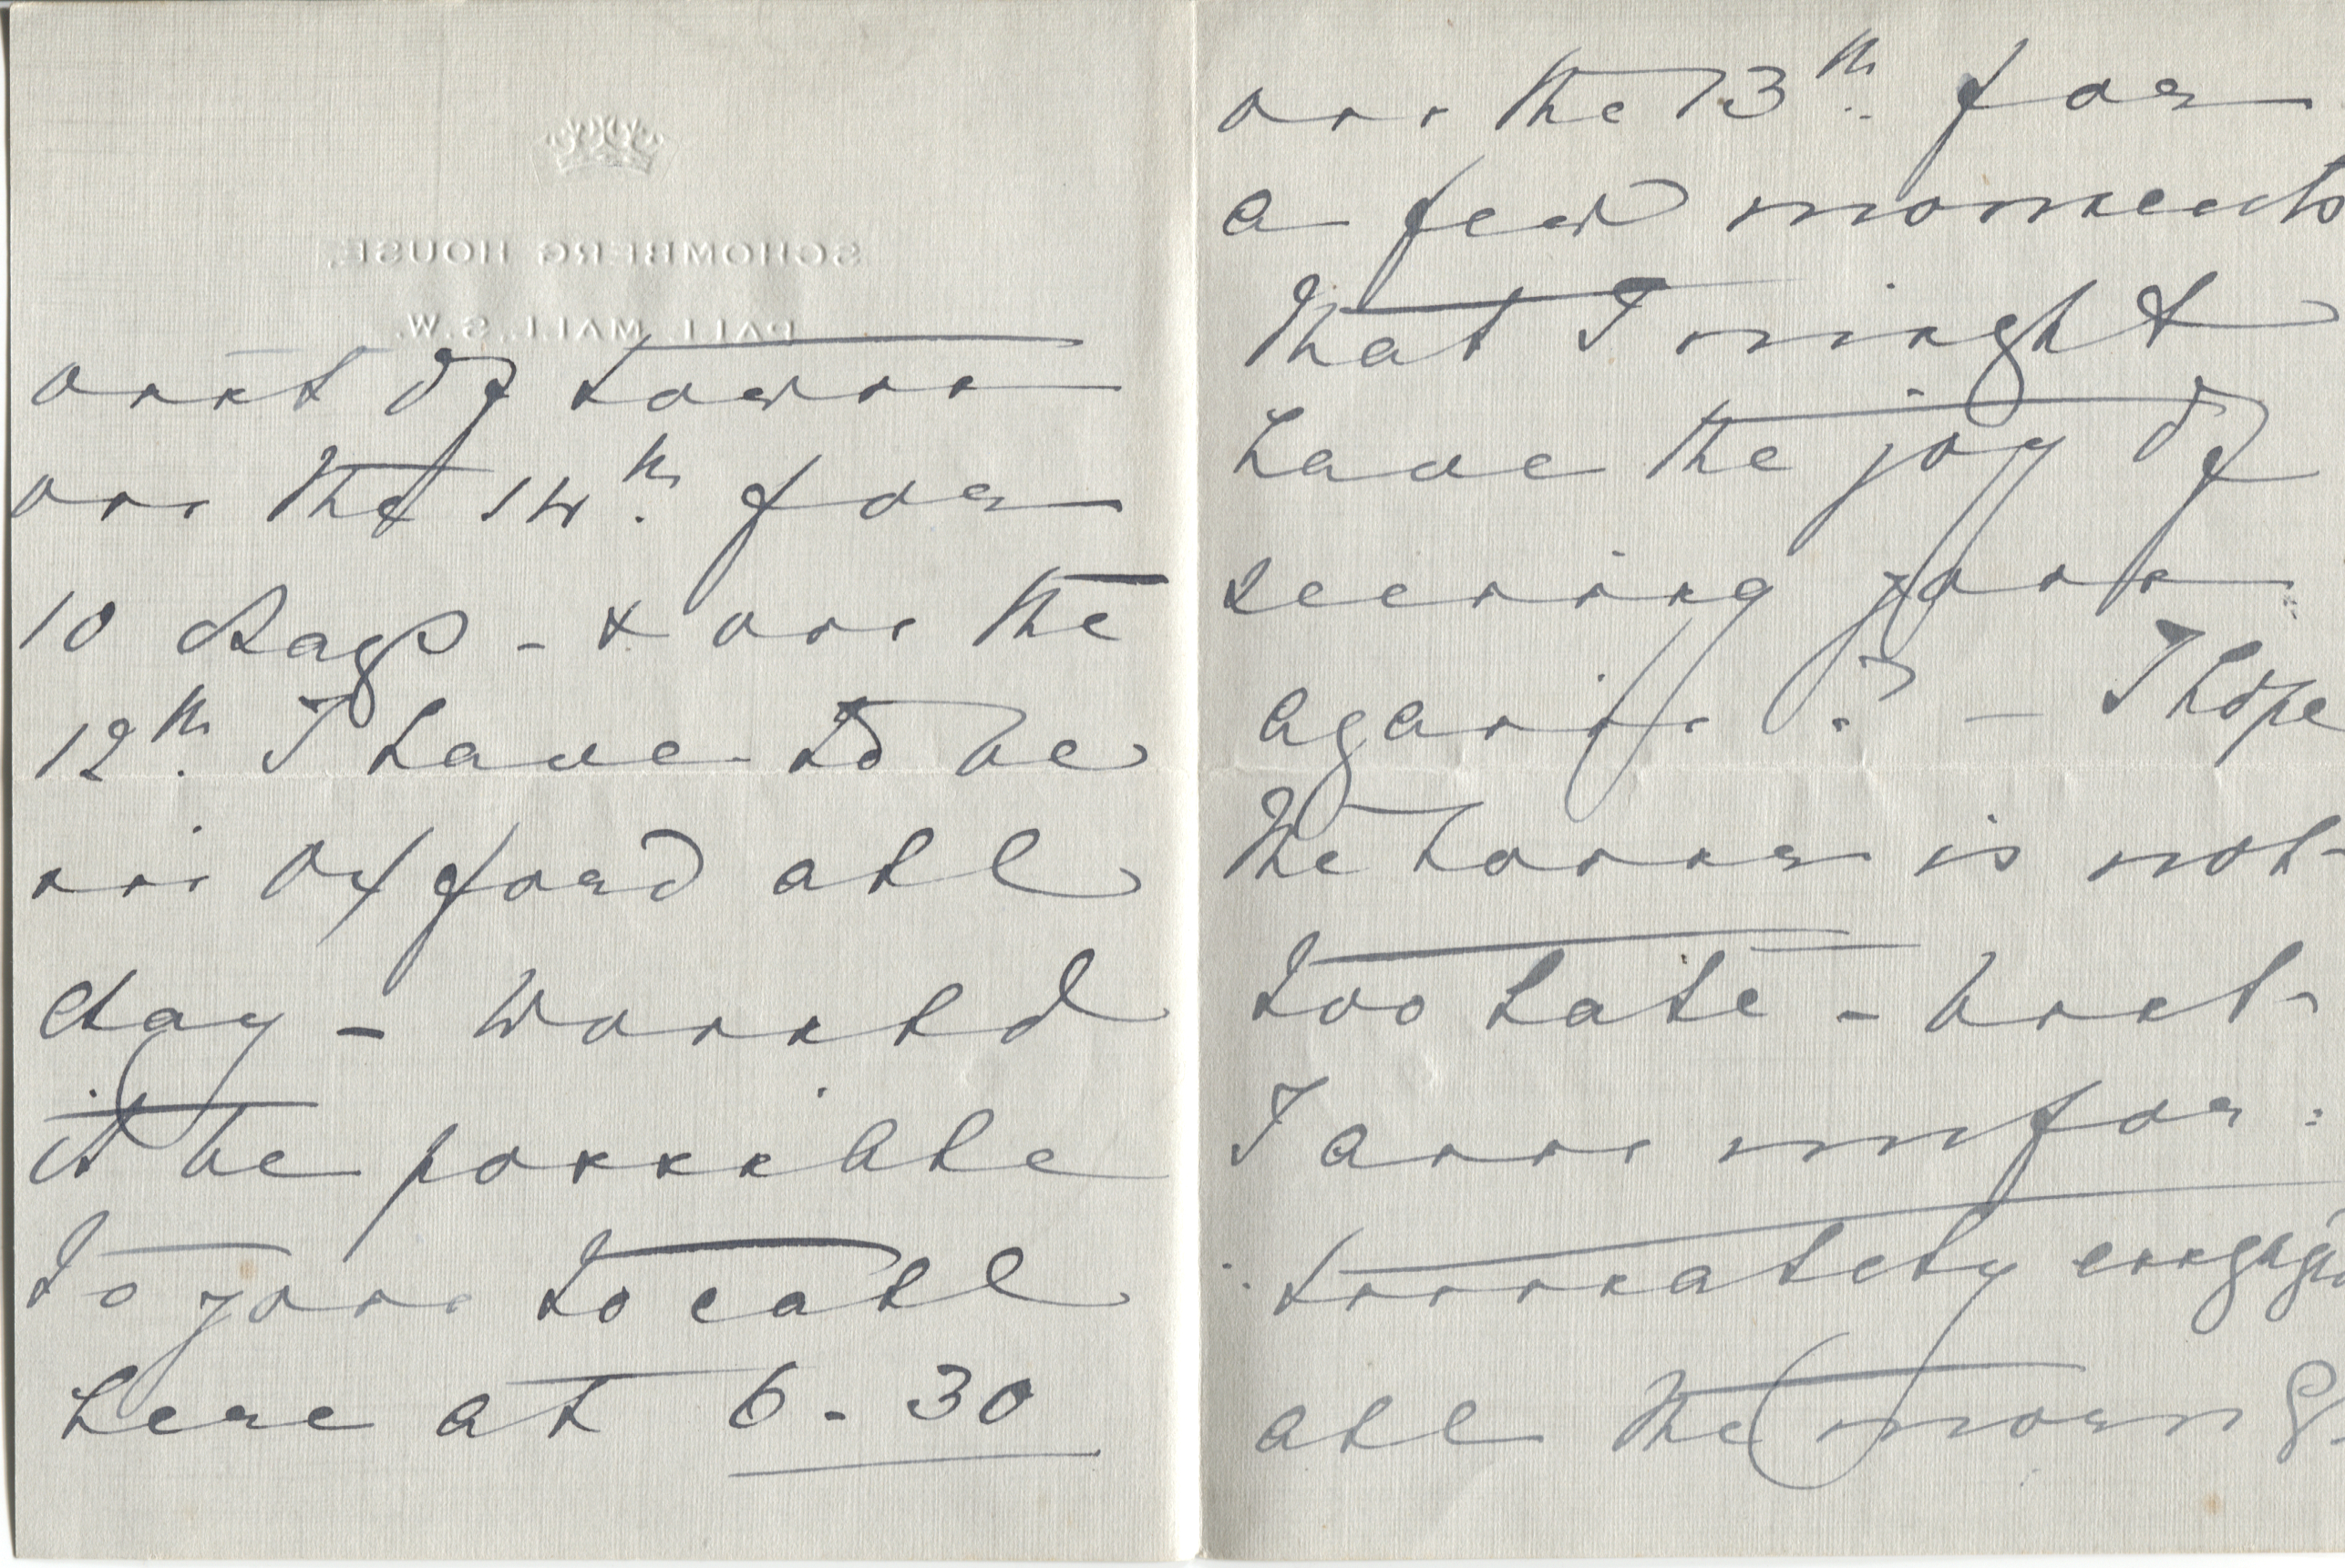 SCHOMBERG HOUSE,
PALL MALL, S.W.
out of town
on the 14th. for
10 days - & on the
12th. I have to be
in Oxford all
day - Would
it be possible
to you to call
here at 6-30
on the 13th. for
a few moments
that I might
have the joy of
seeing you
again? - I hope
the hour is not
too late - but
I am unfor:
:tunately engaged
all the morng.